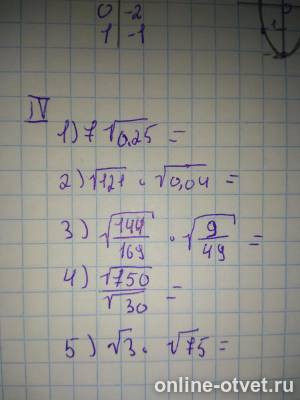 0 | -2
1 | -1
1
IV
1) 7 √0,25 =
2) √121 · √0,04 =
3) √144/169 · √9/49 =
4) √750/√30 =
5) √3 · √75 =
online-otvet.ru